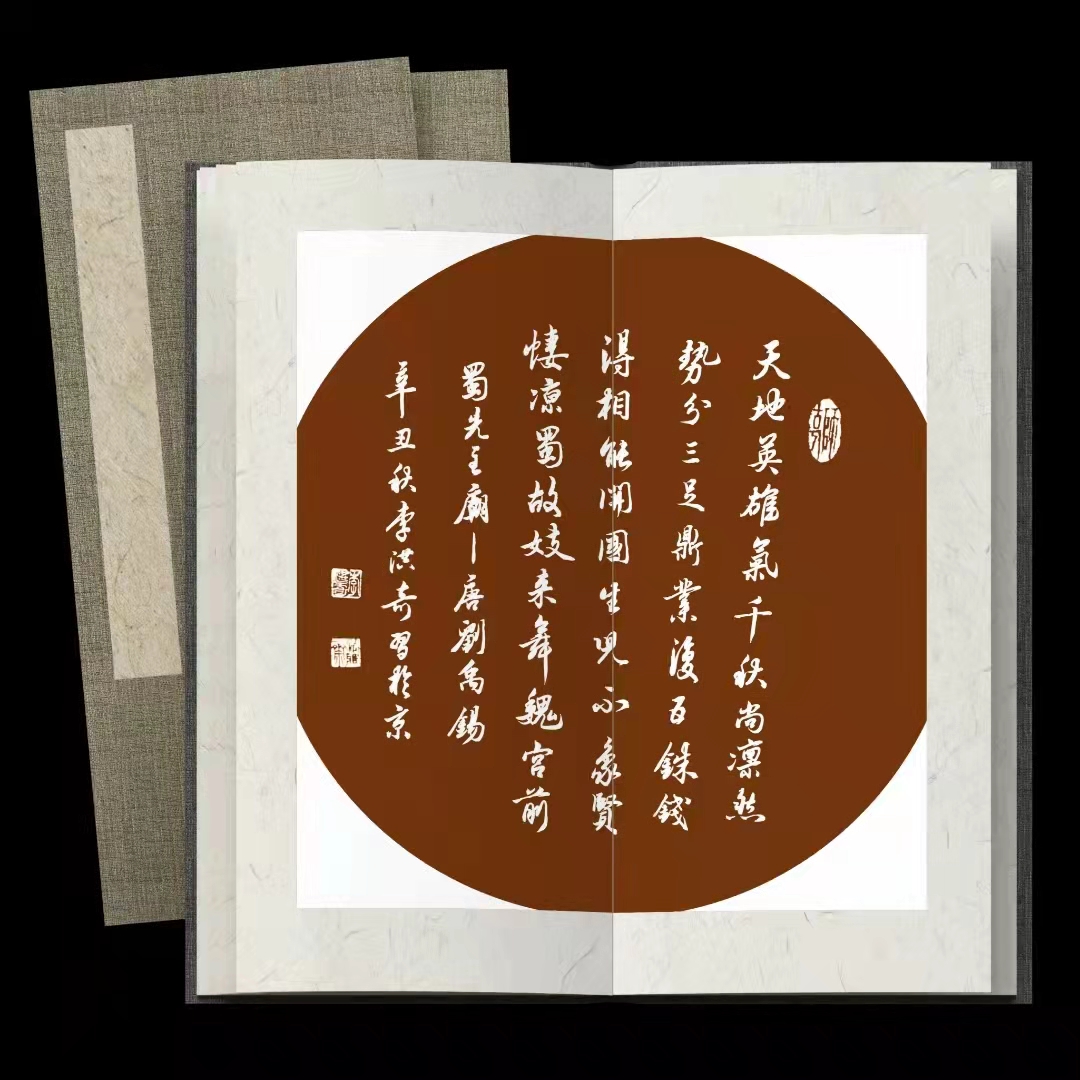 天地英雄氣千秋尚凛然
勢分三足鼎業復五銖錢
得相能開國生兒不象賢
悽凉蜀故妓来舞魏宮前
蜀先主廟—唐劉禹錫
辛丑秋李洪奇習於京